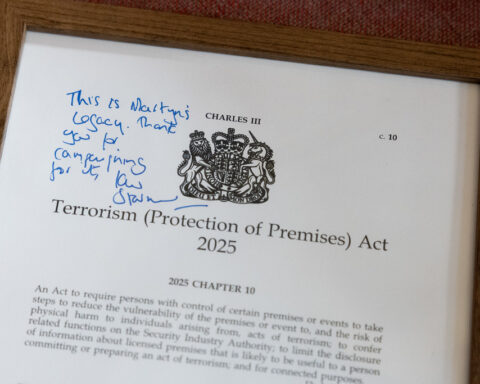 This is Martyn's
legacy. Thank
you for
campaigning
for it,
CHARLES III
c. 10
Terrorism (Protection of Premises) Act
2025
2025 CHAPTER 10
An Act to require persons with control of certain premises or events to take
steps to reduce the vulnerability of the premises or event to, and the risk of
physical harm to individuals arising from, acts of terrorism; to confer
related functions on the Security Industry Authority; to limit the disclosure
of information about licensed premises that is likely to be useful to a person
committing or preparing an act of terrorism; and for connected purposes.